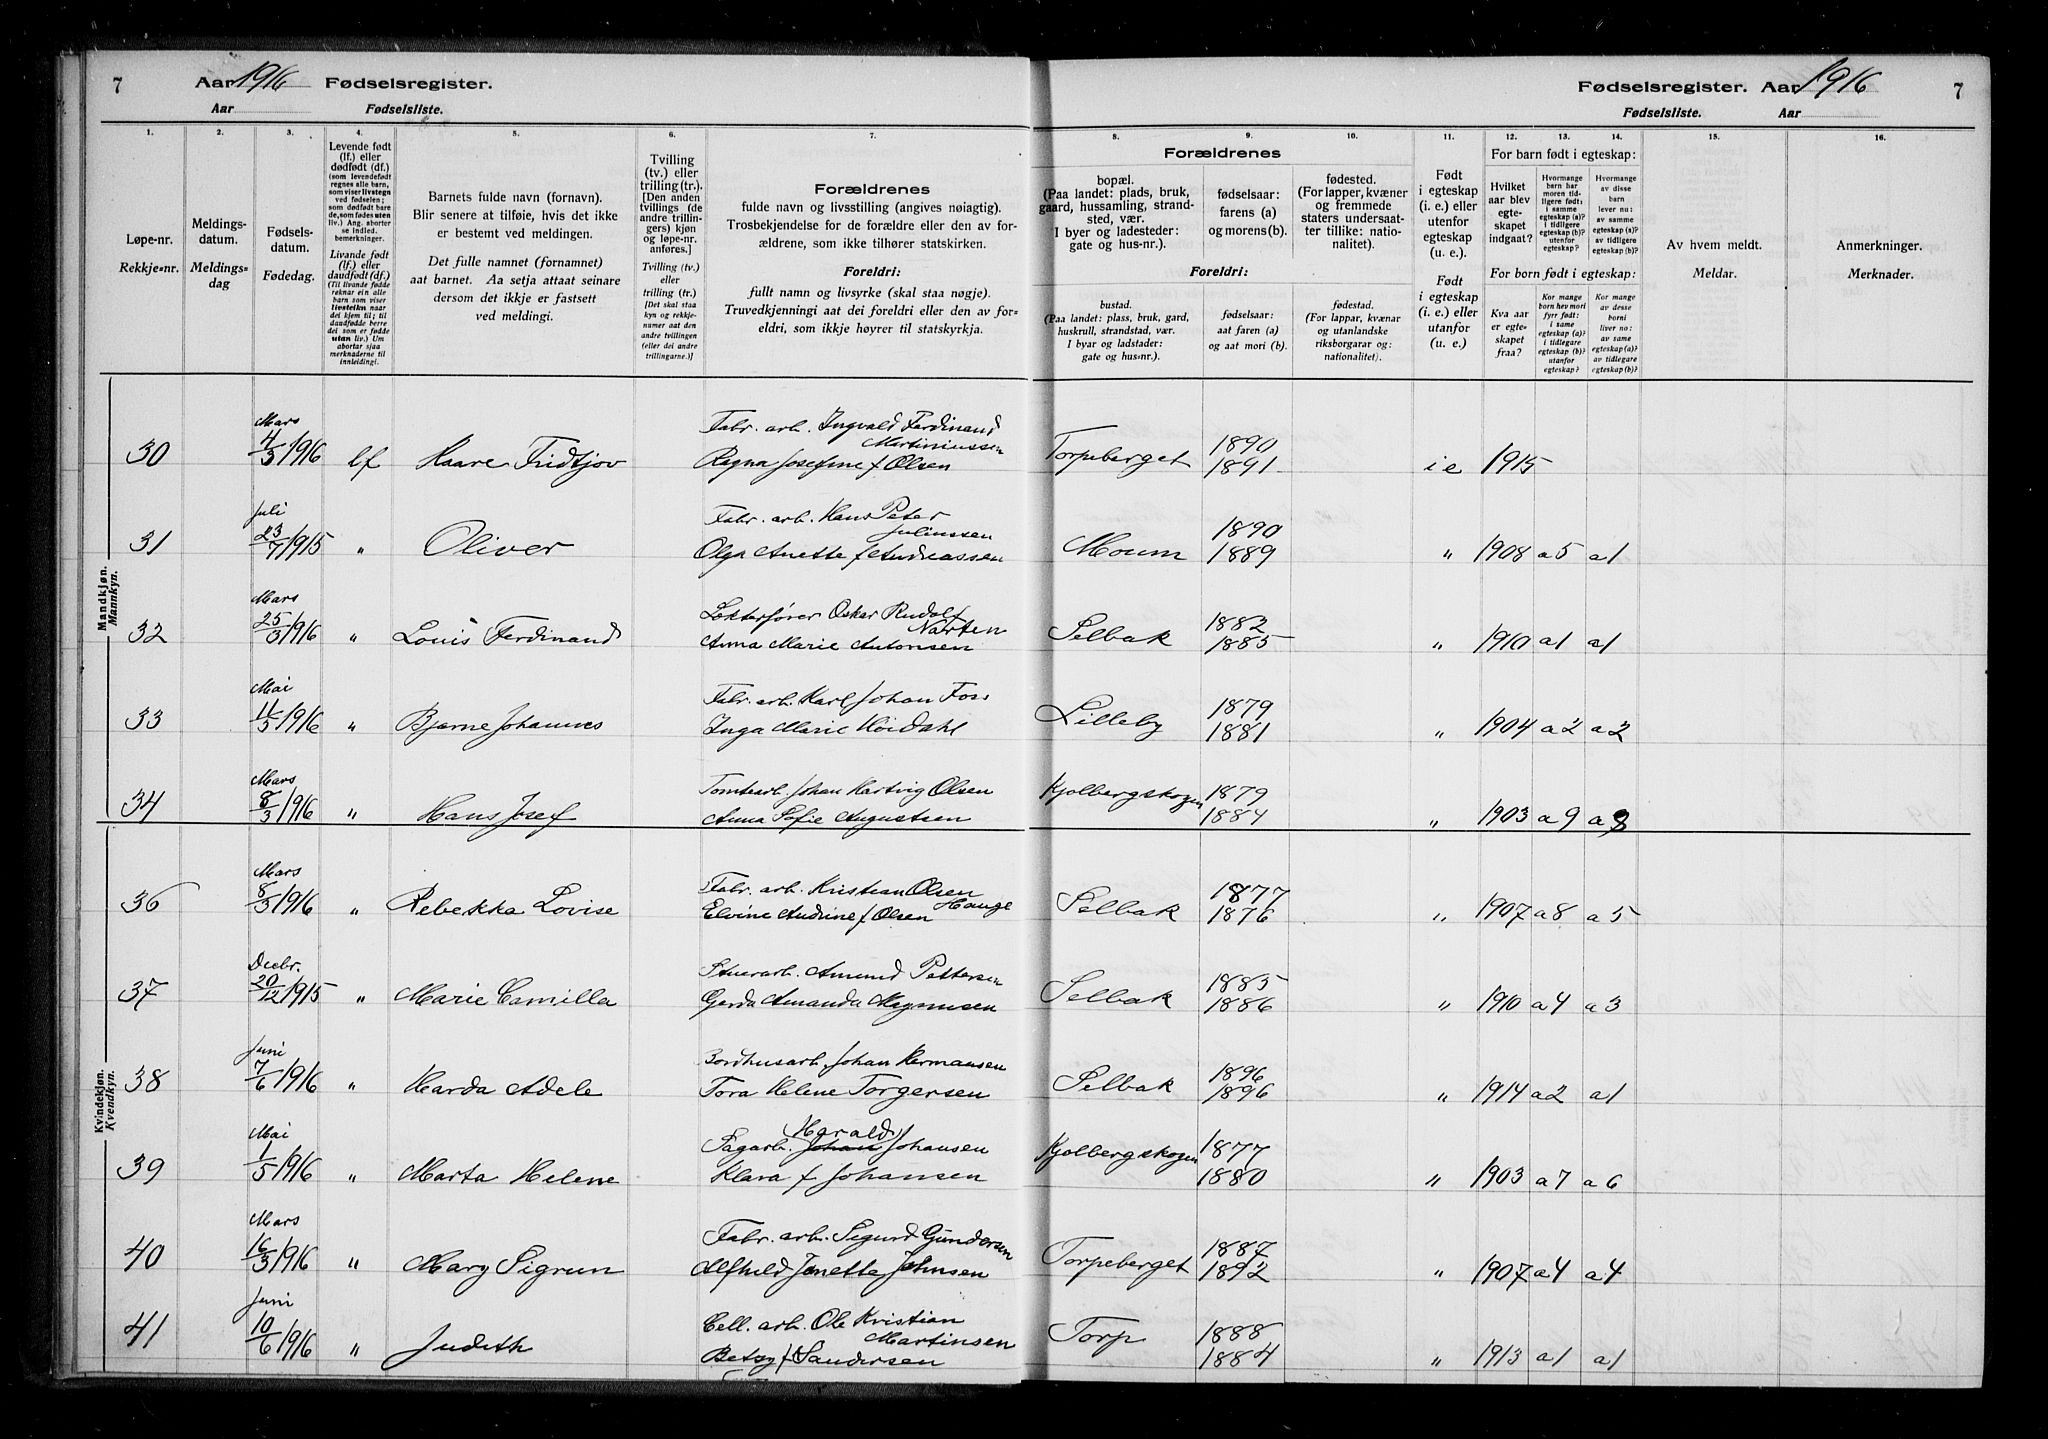 7 Aar 1916 Fødselsregister.
Aar Fødselsliste.
Fødselsregister. Aar 1916 7
Fødselsliste. Aar
1. 2. 3. 4. 5. 6. 7. 8. 9. 10. 11. 12. 13. 14. 15. 16.
Løpe-nr.
Rekkje-nr.
Meldings-
datum.
Meldings-
dag
Fødsels-
datum.
Fødedag.
Levende født
(lf.) eller
dødfødt (df.)
(som levendefødt
regnes alle barn,
som viser livstegn
ved fødselen;
som dødfødt bare
de, som fødes uten
liv.) Ang. aborter
se indled.
bemerkninger.
Livande født
(lf.) eller
daudfødt (df.)
(Til livande fødde
reknar ein alle
born som viser
livsteikn naar
det kjem til; til
daudfødde berre
dei som er fødde
utan liv.) Um
abortar sjaa
merknaderne til
innleiding).
Barnets fulde navn (fornavn).
Blir senere at tilføie, hvis det ikke
er bestemt ved meldingen.
Det fulle namnet (fornamnet)
aat barnet. Aa setja attaat seinare
dersom det ikkje er fastsett
ved meldingi.
Tvilling
(tv.) eller
trilling (tr.).
[Den anden
tvillings (de
andre trillin-
gers) kjøn
og løpe-nr.
anføres.]
Tvilling (tv.)
eller
trilling (tr.)
[Det skal staa
kyn og rekkje-
numer aat den
andre tvillingen
(eller dei andre
trillingarne.)]
Forældrenes
fulde navn og livsstilling (angives nøiagtig).
Trosbekjendelse for de forældre eller den av for-
ældrene, som ikke tilhører statskirken.
Foreldri:
fullt namn og livsyrke (skal staa nøgje).
Truvedkjenningi aat dei foreldri eller den av fo-
eldri, som ikkje høyrer til statskyrkja.
Forældrenes
bopæl.
(Paa landet: plads, bruk,
gaard, hussamling, strand-
sted, vær.
I byer og ladesteder:
gate og hus-nr.).
fødselsaar:
farens (a)
og morens (b).
fødested.
(For lapper, kvæner
og fremmede
staters undersaat-
ter tillike: natio-
nalitet).
Foreldri:
bustad.
(Paa landet: plass, bruk, gard,
huskrull, strandstad, vær.
I byar og ladstader:
gate og hus-nr.).
fødselsaar:
aat faren (a)
og aat mori (b).
fødestad.
(For lappar, kvænar
og utanlandske
riksborgarar og:
nationalitet).
Født
i egteskap
(i. e.) eller
utenfor
egteskap
(u. e.).
Født
i egteskap
(i. e.) eller
utanfor
(u. e.)
For barn født i egteskap:
Hvilket
aar blev
egte-
skapet
indgaat?
Hvormange
barn har
moren tid-
ligere født:
i samme
egteskap (a)?
i tidligere
egteskap (b)?
utenfor
egteskap?
Hvormange
av disse
barn
lever nu:
av samme
egteskap (a)?
av tidligere
egteskap (b)?
For born født i egteskap:
Kva aar
er egte-
skapet
fraa?
Kor mange
born hev mori
fyrr født:
i same
egteskap (a)?
i tidlegare
egteskap (b)?
utanfor
egteskap?
Kor mange
av desse
borni
liver no:
av same
egteskap (a)?
av tidlegare
egteskap (b)?
Av hvem meldt.
Meldar.
Anmerkninger.
Merknader.
Mandkjøn.
Mannkyn.
30 Mars 4/3 1916 lf Kaare Fridtjov Fabr. arb. Ingvald Ferdinand Martiniussen Torpeberget 1890
Ragna Josefine f Olsen 1891 i e 1915
31 Juli 23/7 1915 " Oliver Fabr. arb. Hans Peter Juliussen Moum 1890
Olga Anette f Andreassen 1889 " 1908 a5 a1
32 Mars 25/3 1916 " Louis Ferdinand Lekterfører Oskar Rudolf Narten Selbak 1882
Anna Marie Antonsen 1885 " 1910 a1 a1
33 Mai 11/5 1916 " Bjarne Johannes Fabr. arb. Karl Johan Foss Lilleby 1879
Inga Marie Höidahl 1881 " 1904 a2 a2
34 Mars 8/3 1916 " Hans Josef Tomtearb. Johan Hartvig Olsen Kjølbergskogen 1879
Anna Sofie Augustsen 1884 " 1903 a9 a8
Kvindekjøn.
Kvendkyn.
36 Mars 8/3 1916 " Rebekka Lovise Fabr. arb. Kristian Olsen Hauge Selbak 1877
Elvine Andrine f Olsen 1876 " 1907 a8 a5
37 Decbr. 20/12 1915 " Marie Camilla Stuerarb. Amund Pettersen Selbak 1885
Gerda Amanda Magnusen 1886 " 1910 a4 a3
38 Juni 7/6 1916 " Harda Adele Bordhusarb. Johan Hermansen Selbak 1896
Tora Helene Torgersen 1896 " 1914 a2 a1
39 Mai 1/5 1916 " Marta Helene Sagarb. Johan Harald Johansen Kjølbergskogen 1877
Klara f Johansen 1880 " 1903 a7 a6
40 Mars 16/3 1916 " Mary Sigrun Fabr. arb. Sigurd Gundersen Torpeberget 1887
Alfhild Jenette Johnsen 1892 " 1907 a4 a4
41 Juni 10/6 1916 " Judith Cell. arb. Ole Kristian Martinsen Torp 1888
Betsy f Sandersen 1884 " 1913 a1 a1